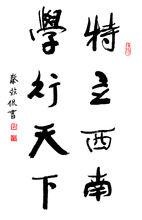 特立西南
學行天下